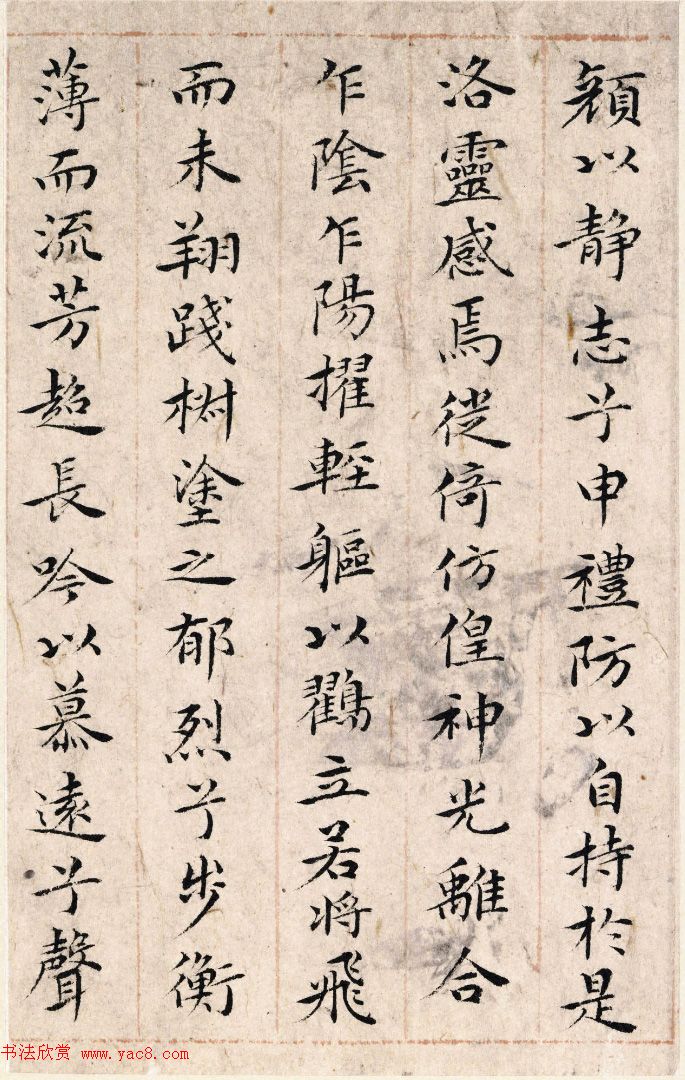 顏以靜志兮申禮防以自持於是
洛靈感焉徙倚仿偟神光離合
乍陰乍陽擢輕軀以鸛立若將飛
而未翔踐椒塗之郁烈兮步衡
薄而流芳超長吟以慕遠兮聲
书法欣赏 www.yac8.com